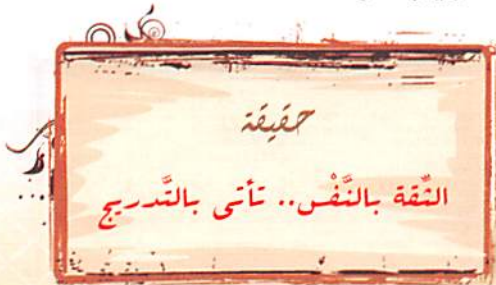 حقيقة
الثِّقة بالنَّفْس.. تأتى بالتَّدريج